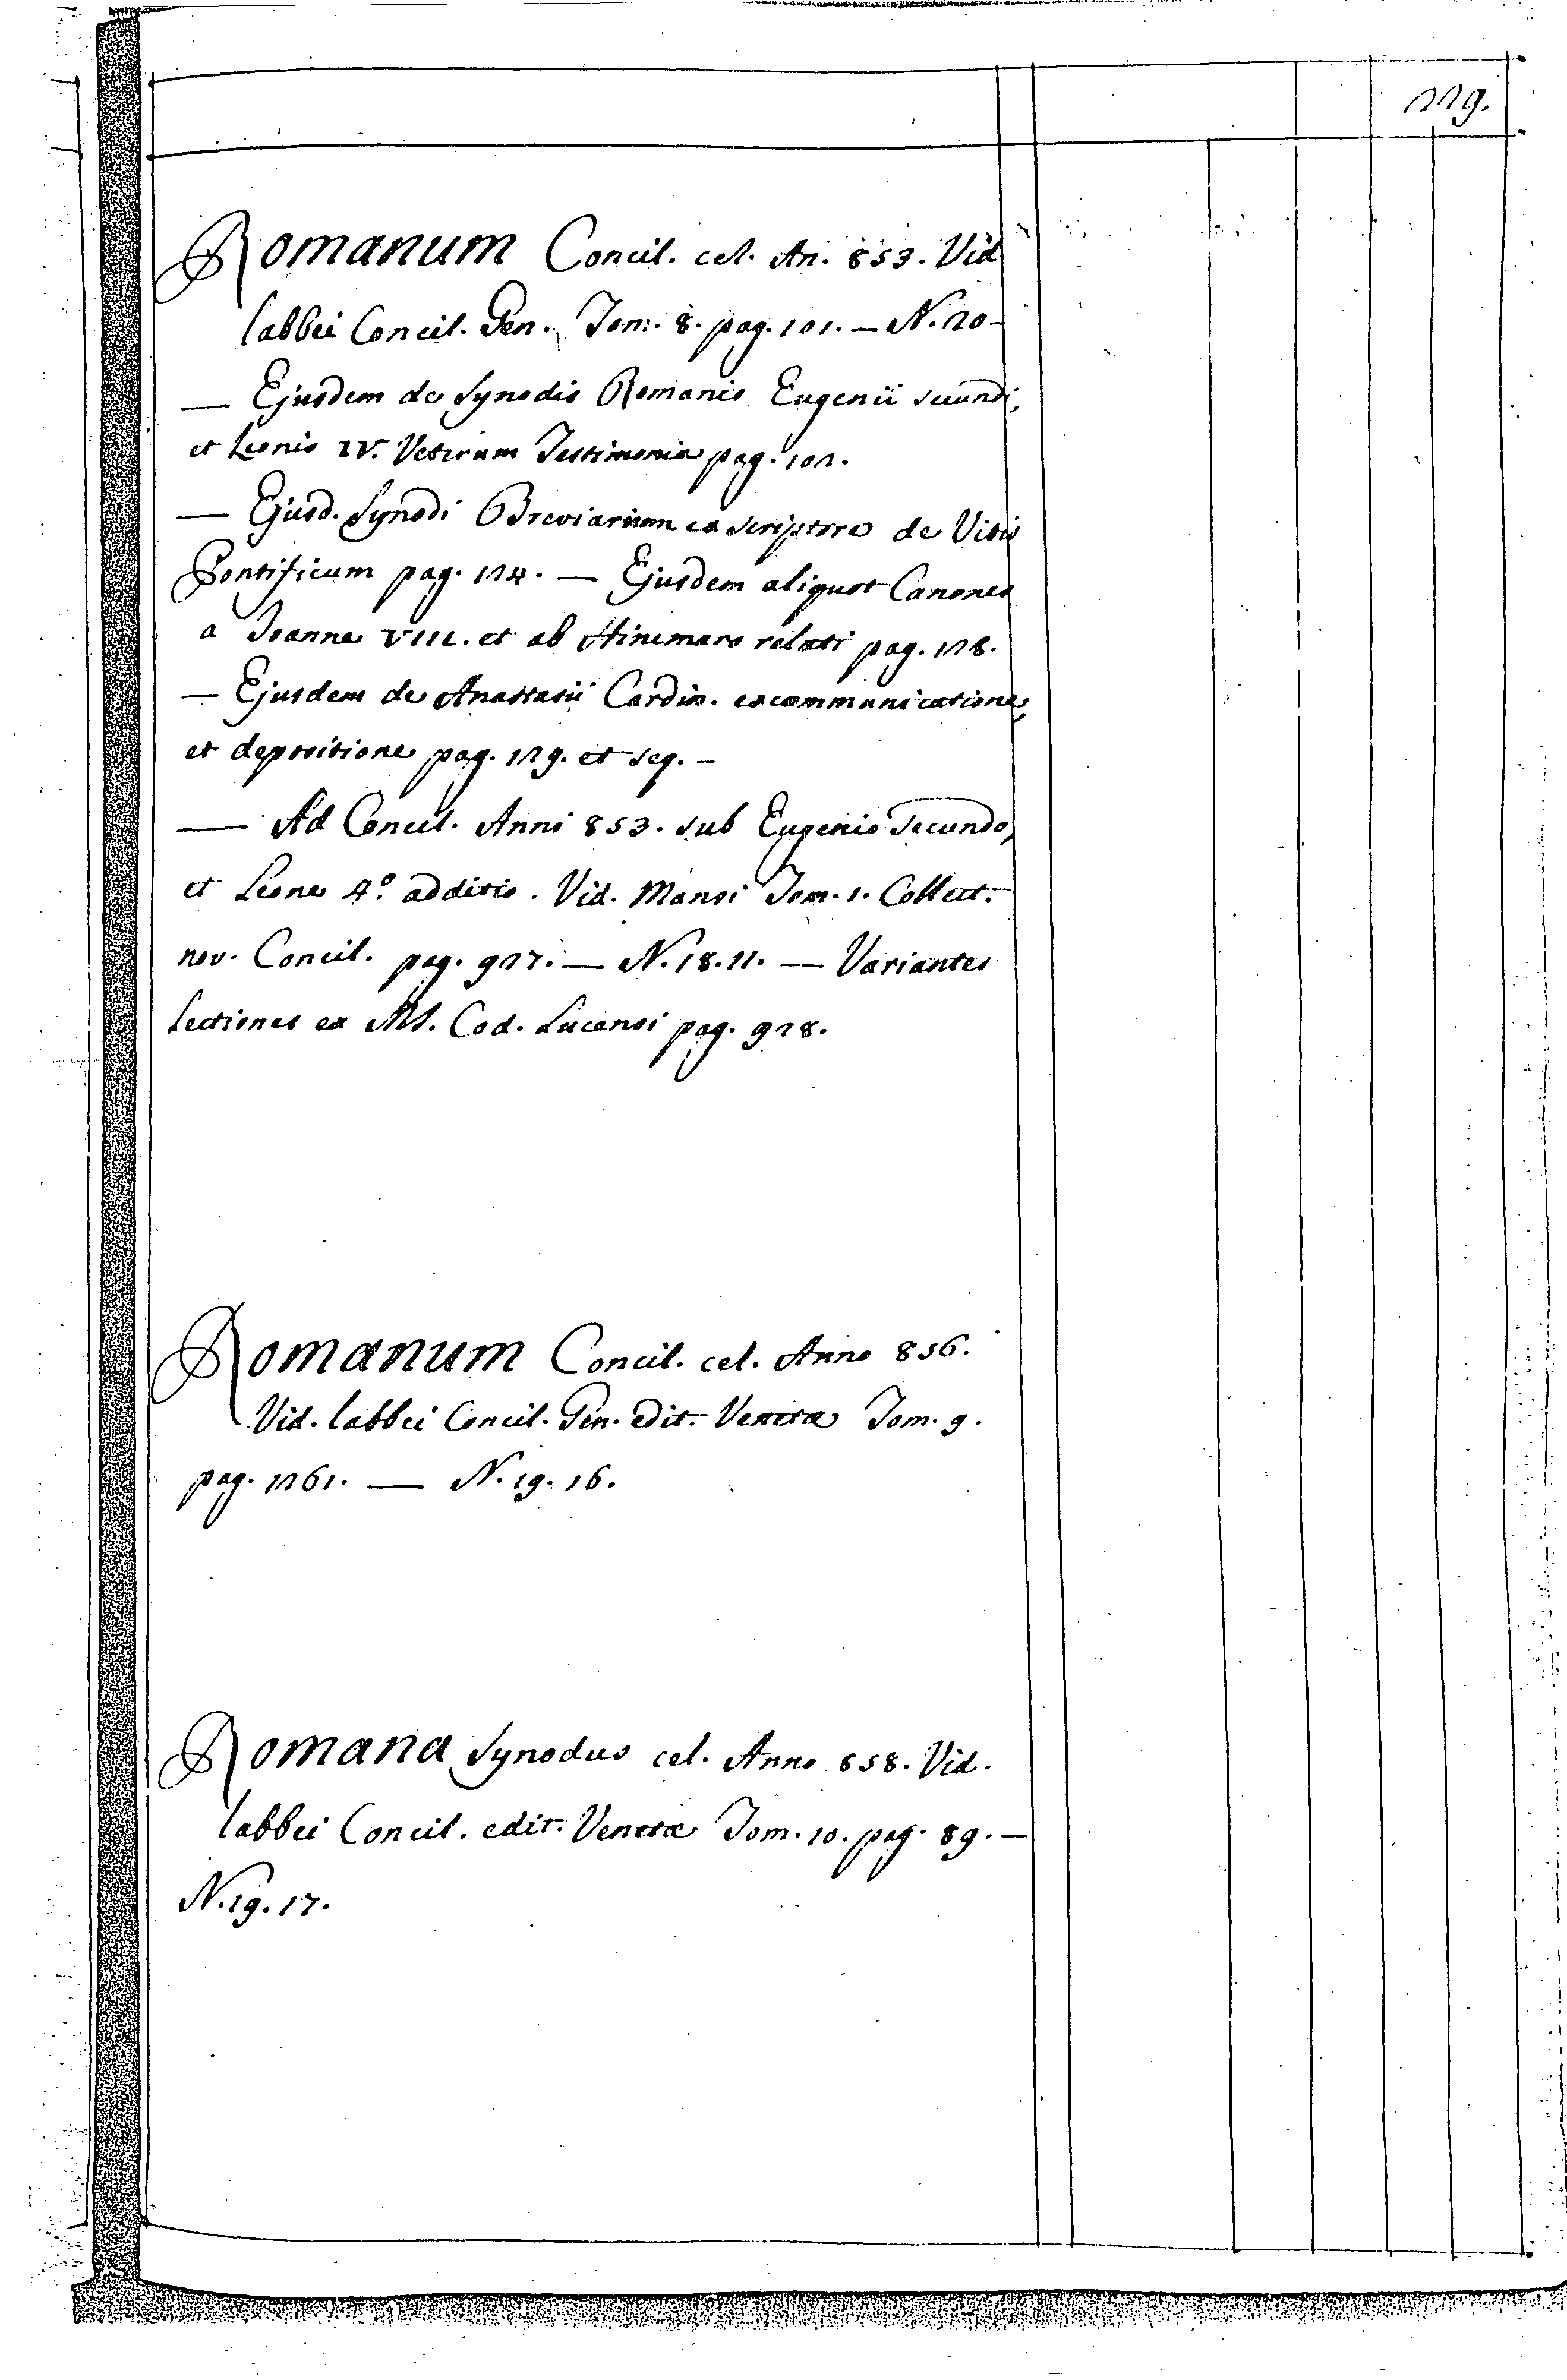 229.
Romanum Concil. cel. An. 853. Vid
Labbei Concil. Gen. Tom. 8. pag. 101. — N. 20 -
— Ejusdem de Synodis Romanis Eugenii secundi,
et Leonis IV. Veterum Testimonia pag. 102.
— Ejusd. Synodi Breviarium ex scriptore de Vitis
Pontificum pag. 124. — Ejusdem aliquot Canones
a Joanne VIII. et ab Hincmaro relati pag. 128.
— Ejusdem de Anastasii Cardin. excommunicatione,
et depositione pag. 129. et seq. -
— Ad Concil. Anni 853. sub Eugenio Secundo,
et Leone 4.º additio. Vid. Mansi Tom. 1. Collect.
nov. Concil. pag. 927. — N. 18. 11. — Variantes
Lectiones ex MS. Cod. Lucensi pag. 928.
Romanum Concil. cel. Anno 856.
Vid. Labbei Concil. Gen. edit. Venetæ Tom. 9.
pag. 1261. — N. 19. 16.
Romana Synodus cel. Anno 858. Vid.
Labbei Concil. edit. Venetæ Tom. 10. pag. 89. —
N. 19. 17.